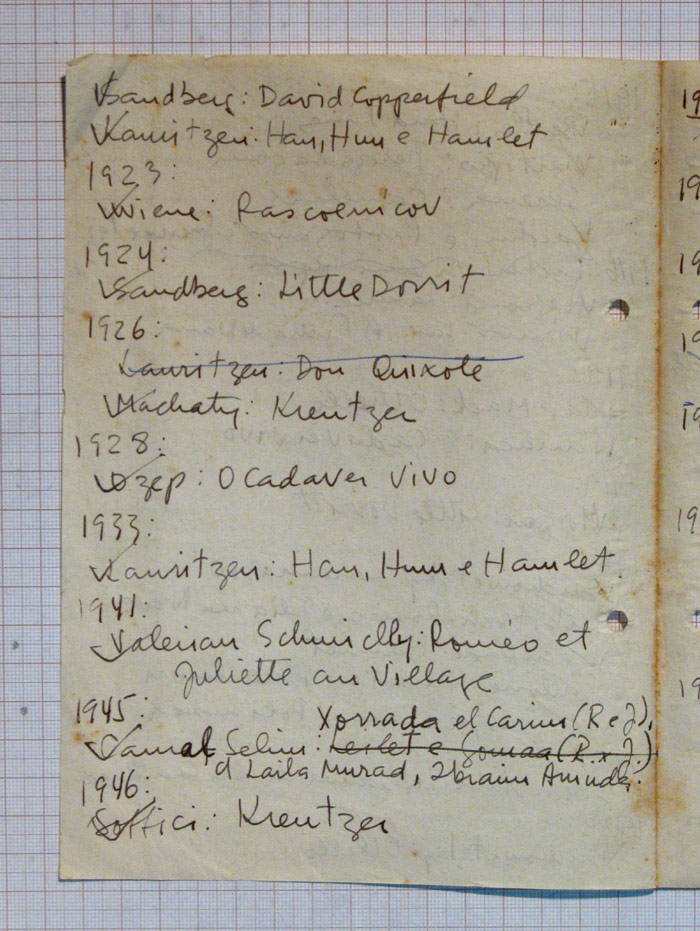 Sandberg: David Copperfield
Lauritzen: Han, Hun e Hamlet
1923:
Wiene: Rascolnicov
1924:
Sandberg: Little Dorrit
1926:
Lauritzen: Don Quixote
Machaty: Kreutzer
1928:
Ozep: O Cadaver Vivo
1933:
Lauritzen: Han, Hun e Hamlet.
1941:
Valerian Schmidly: Roméo et
Juliette au Village
1945:
Xorrada el Carim (R e J),
Kamal Selim: (R. x J.)
d Laila Murad, Ibraim
1946:
Soffici: Kreutzer
19
19
19
19
19
19
19